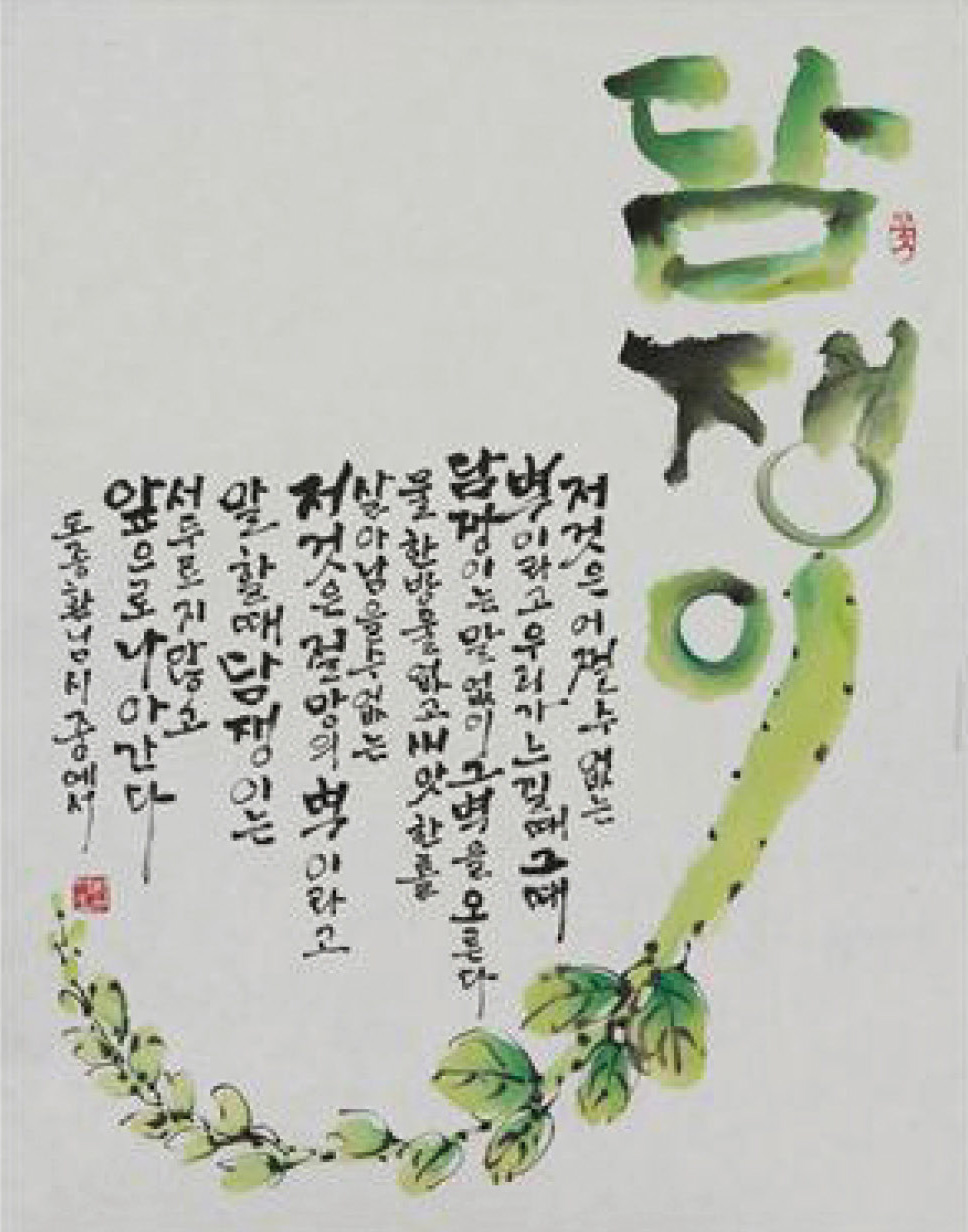 담쟁이
저것은 어쩔 수 없는
벽이라고 우리가 느낄때 그때
담쟁이는 말없이 그 벽을 오른다
물 한방울 없고 씨앗 한톨
살아남을 수 없는
저것은 절망의 벽이라고
말 할 때 담쟁이는
서두르지 않고
앞으로 나아간다
도종환님 시 중에서